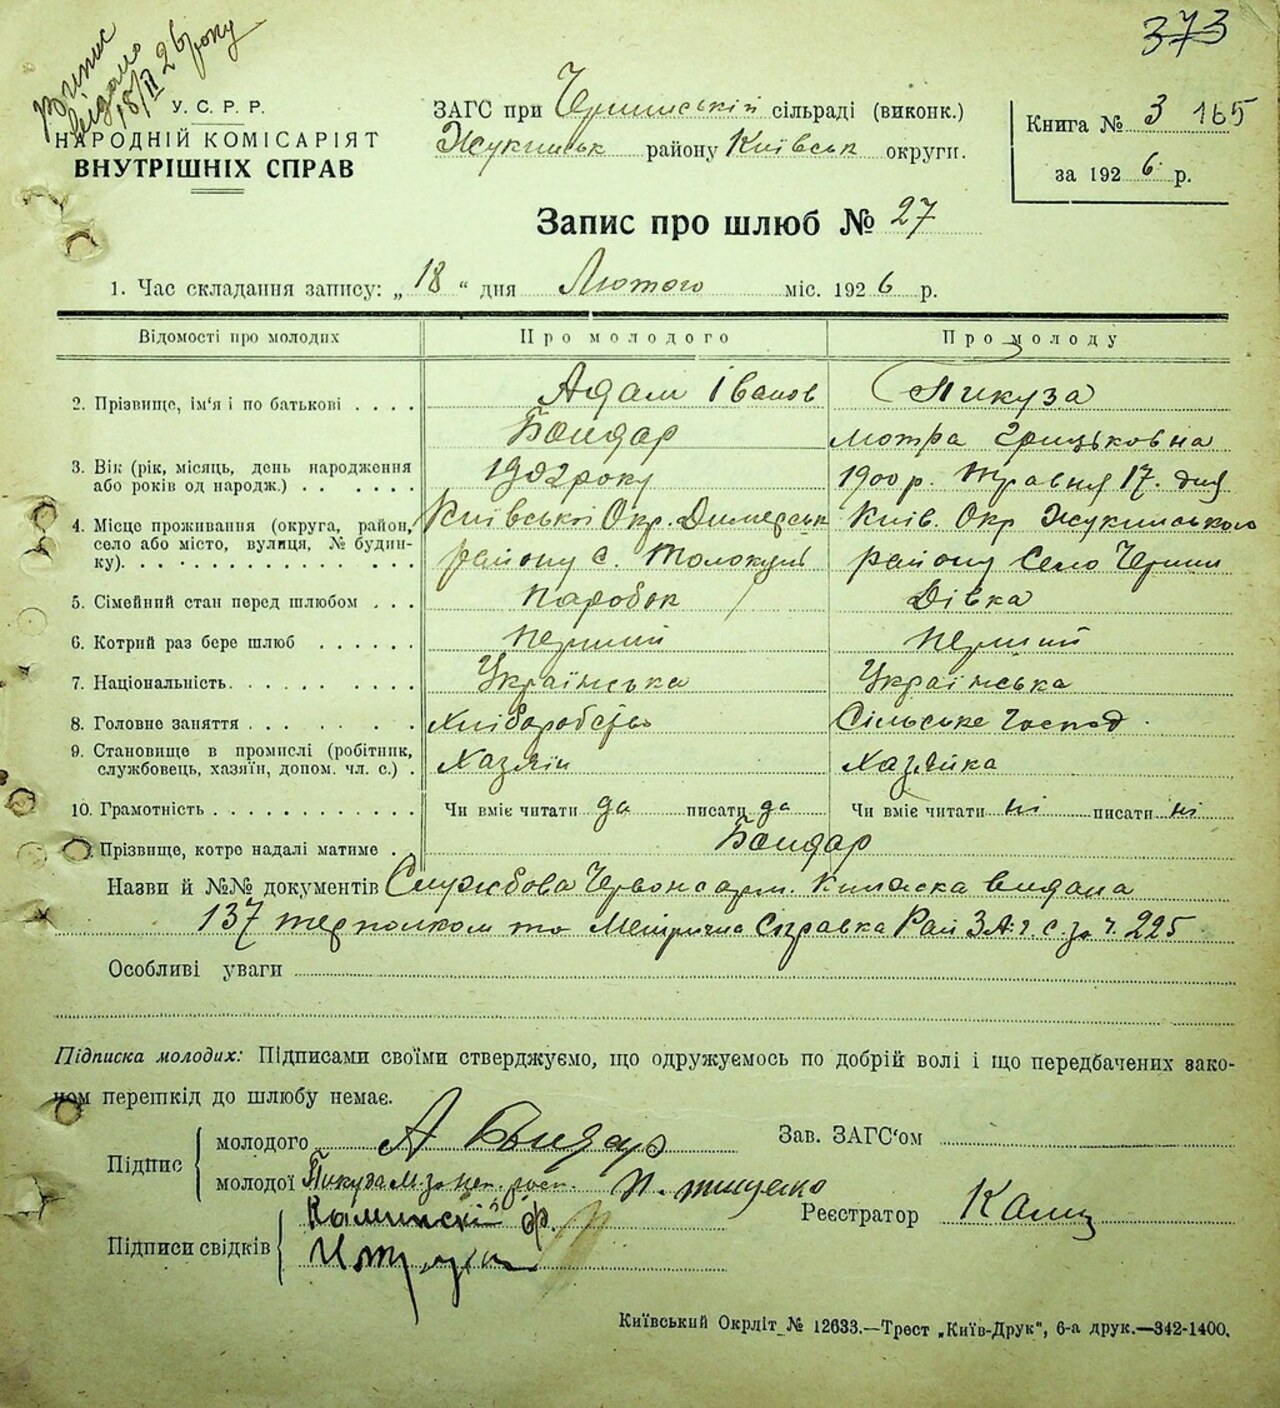 373
Випис
видано
18/II 26 року
У. С. Р. Р.
НАРОДНІЙ КОМІСАРІЯТ
ВНУТРІШНІХ СПРАВ
ЗАГС при Чернинській сільраді (виконк.)
Жукинськ району Київськ округи.
Книга № 3 165
за 1926 р.
Запис про шлюб № 27
1. Час складання запису: „18“ дня Лютого міс. 1926 р.
Відомості про молодих Про молодого Про молоду
2. Прізвище, ім'я і по батькові . . . . Адам Іванов Пикуза
Бондар Мотра Грицьковна
3. Вік (рік, місяць, день народження або років од народж.) . . . . . . . 1902 року 1900 р. Травня 17. дня
4. Місце проживання (округа, район, Київської Окр. Димерськ Київ. Окр Жукинського
село або місто, вулиця, № будин- району с. Толокунь району Село Чернин
ку). . . . . . . . . . . . . . . .
5. Сімейний стан перед шлюбом . . . паробок Дівка
6. Котрий раз бере шлюб . . . . . . перший перший
7. Національність. . . . . . . . . . Українська Українська
8. Головне заняття . . . . . . . . . Хліборобство Сільське Господ.
9. Становище в промислі (робітник,
службовець, хазяїн, допом. чл. с.) . Хазяїн Хазяйка
10. Грамотність . . . . . . . . . . . Чи вміє читати да писати да Чи вміє читати ні писати ні
Прізвище, котре надалі матиме . . Бондар
Назви й №№ документів Службова Червоноарм. Книжка видана
137 терполком та Метрична Справка Рай З.А.Г.С. за ч. 225
Особливі уваги
Підписка молодих: Підписами своїми стверджуємо, що одружуємось по добрій волі і що передбачених зако-
ном перешкід до шлюбу немає.
Підпис молодого А Бондар Зав. ЗАГС'ом
молодої Пикуза М. за неп. росп.
Реєстратор
Підписи свідків Каминскій Ф.
Київський Окрліт № 12633.—Трест „Київ-Друк“, 6-а друк.—342-1400.